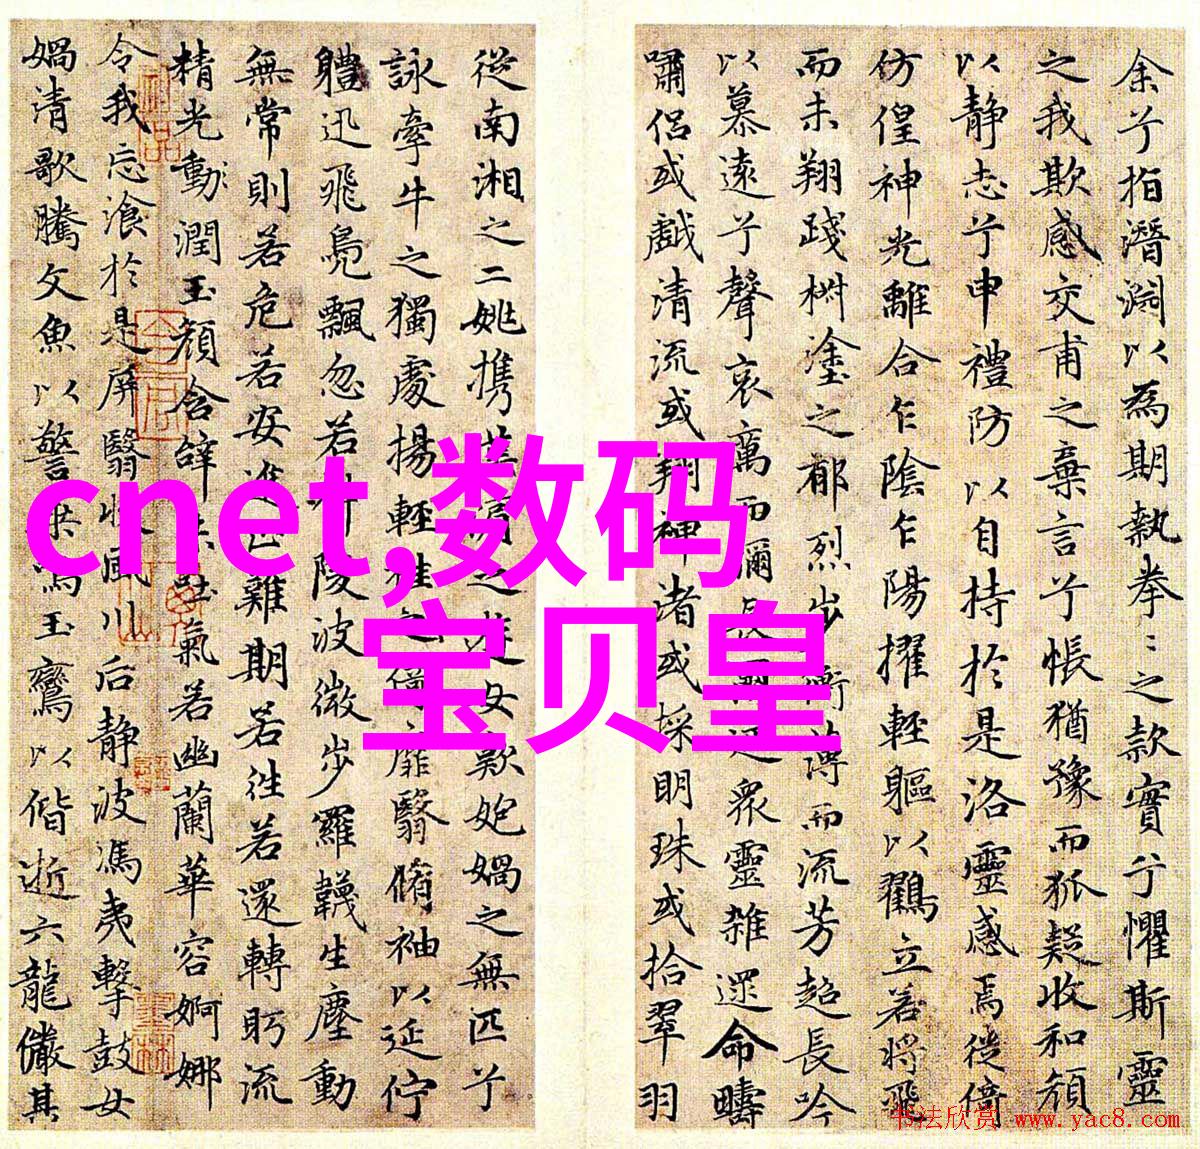 余兮指潛淵以為期執拳〻之款實兮懼斯靈
之我欺感交甫之棄言兮悵猶豫而狐疑收和顏
以静志兮申禮防以自持於是洛靈感焉徙倚
仿偟神光離合乍陰乍陽擢輕軀以鶴立若將飛
而未翔踐椒塗之郁烈步衡薄而流芳超長吟
以慕遠兮聲哀厲而彌長爾迺衆靈雜遝命疇
嘯侶或戲清流或翔神渚或採明珠或拾翠羽
從南湘之二姚攜漢濱之遊女歎匏媧之無匹兮
詠牽牛之獨處揚輕袿之倚靡翳脩袖以延佇
體迅飛鳧飄忽若神陵波微步羅韈生塵動
無常則若危若安進止難期若往若還轉眄流
精光動潤玉顏含辭未吐氣若幽蘭華容婀娜
令我忘飡於是屏翳收風川后静波馮夷擊鼓女
媧清歌騰文魚以警乘鳴玉鸞以偕逝六龍儼其
cnet,数码
宝贝皇
书法欣赏 www.yac8.com